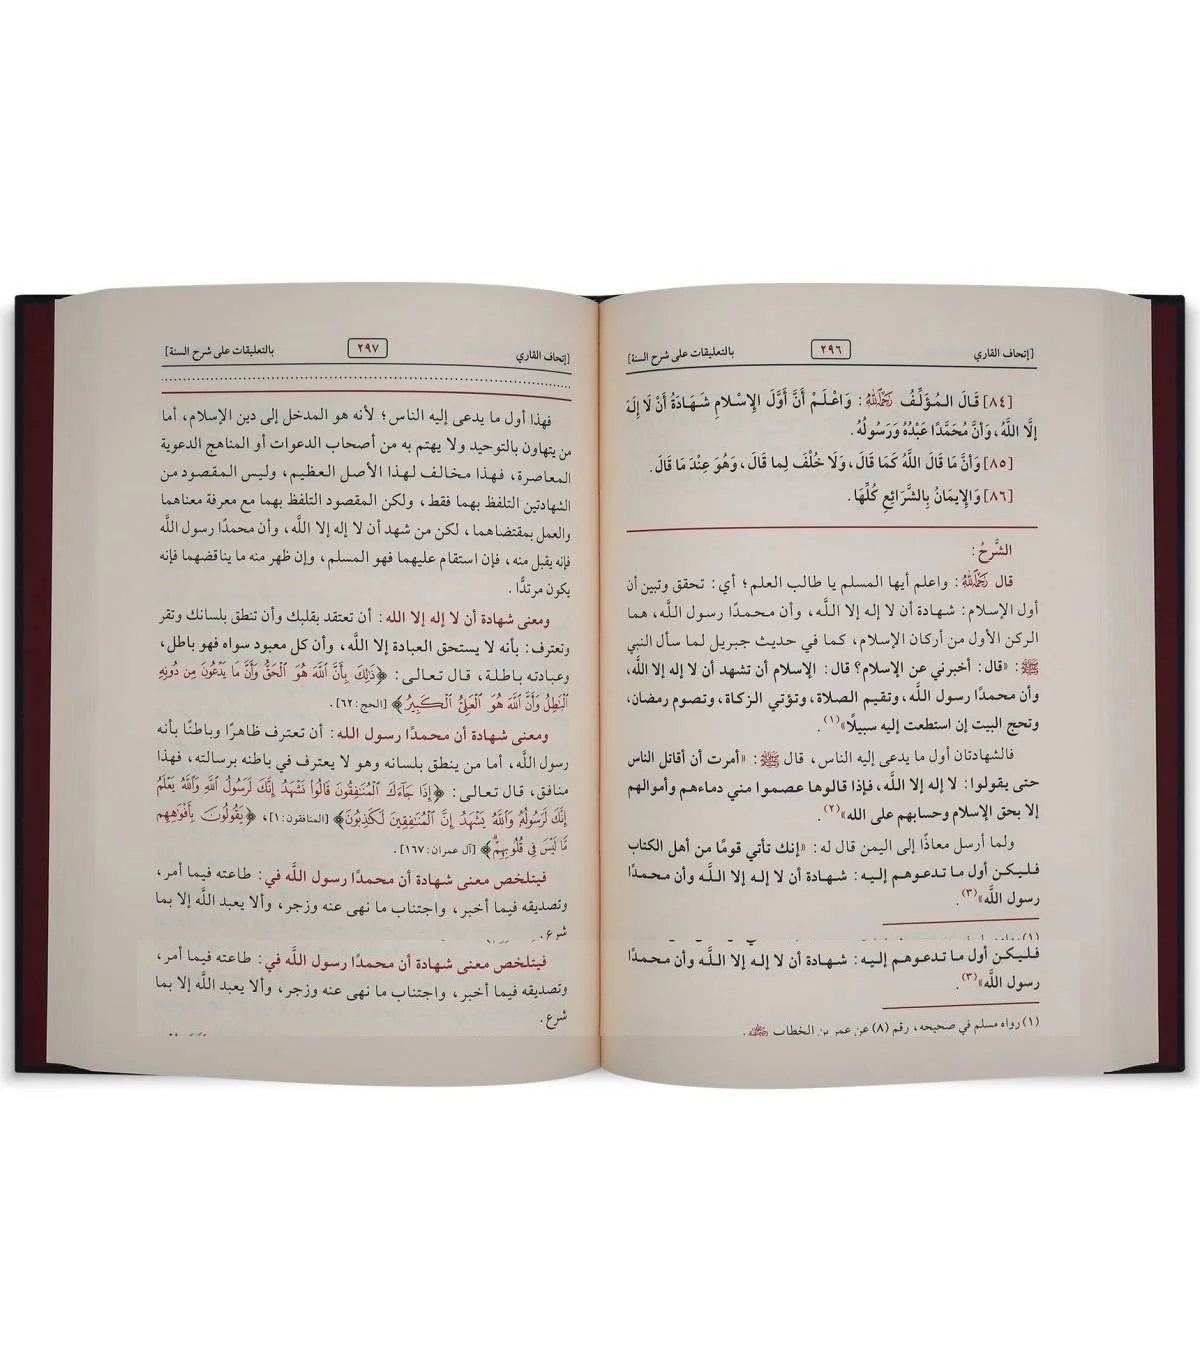 [إتحاف القاري
٢٩٦
بالتعليقات على شرح السنة]
[٨٤] قَالَ الـمُؤَلِّفُ رَحِمَهُ اللَّهُ: وَاعْلَمْ أَنَّ أَوَّلَ الإِسْلامِ شَهَادَةُ أَنْ لَا إِلَهَ
إلَّا اللَّهُ، وَأنَّ مُحَمَّدًا عَبْدُهُ وَرَسُولُهُ.
[٨٥] وَأنَّ مَا قَالَ اللَّهُ كَمَا قَالَ، وَلَا خُلْفَ لِما قَالَ، وَهُوَ عِنْدَ مَا قَالَ.
[٨٦] وَالإِيمَانُ بِالشَّرَائِعِ كُلِّهَا.
الشَّرْحُ:
قال رَحِمَهُ اللَّهُ: واعلم أيها المسلم يا طالب العلم؛ أي: تحقق وتبين أن
أول الإسلام: شهادة أن لا إله إلا اللَّه، وأن محمدًا رسول اللَّه، هما
الركن الأول من أركان الإسلام، كما في حديث جبريل لما سأل النبي
ﷺ: «قال: أخبرني عن الإسلام؟ قال: الإسلام أن تشهد أن لا إله إلا اللَّه،
وأن محمدًا رسول اللَّه، وتقيم الصلاة، وتؤتي الزكاة، وتصوم رمضان،
وتحج البيت إن استطعت إليه سبيلًا»(١).
فالشهادتان أول ما يدعى إليه الناس، قال ﷺ: «أمرت أن أقاتل الناس
حتى يقولوا: لا إله إلا اللَّه، فإذا قالوها عصموا مني دماءهم وأموالهم
إلا بحق الإسلام وحسابهم على الله»(٢).
ولما أرسل معاذًا إلى اليمن قال له: «إنك تأتي قومًا من أهل الكتاب
فليكن أول ما تدعوهم إليه: شهادة أن لا إله إلا اللَّه وأن محمدًا
رسول اللَّه»(٣).
فليكن أول ما تدعوهم إليه: شهادة أن لا إله إلا اللَّه وأن محمدًا
رسول اللَّه»(٣).
(١) رواه مسلم في صحيحه، رقم (٨) عن عمر بن الخطاب رضي الله عنه.
[إتحاف القاري
٢٩٧
بالتعليقات على شرح السنة]
فهذا أول ما يدعى إليه الناس؛ لأنه هو المدخل إلى دين الإسلام، أما
من يتهاون بالتوحيد ولا يهتم به من أصحاب الدعوات أو المناهج الدعوية
المعاصرة، فهذا مخالف لهذا الأصل العظيم، وليس المقصود من
الشهادتين التلفظ بهما فقط، ولكن المقصود التلفظ بهما مع معرفة معناهما
والعمل بمقتضاهما، لكن من شهد أن لا إله إلا اللَّه، وأن محمدًا رسول اللَّه
فإنه يقبل منه، فإن استقام عليهما فهو المسلم، وإن ظهر منه ما يناقضهما فإنه
يكون مرتدًّا.
ومعنى شهادة أن لا إله إلا الله: أن تعتقد بقلبك وأن تنطق بلسانك وتقر
وتعترف: بأنه لا يستحق العبادة إلا اللَّه، وأن كل معبود سواه فهو باطل،
وعبادته باطلة، قال تعالى: ﴿ذَٰلِكَ بِأَنَّ ٱللَّهَ هُوَ ٱلْحَقُّ وَأَنَّ مَا يَدْعُونَ مِن دُونِهِ
ٱلْبَٰطِلُ وَأَنَّ ٱللَّهَ هُوَ ٱلْعَلِىُّ ٱلْكَبِيرُ﴾ [الحج: ٦٢].
ومعنى شهادة أن محمدًا رسول الله: أن تعترف ظاهرًا وباطنًا بأنه
رسول اللَّه، أما من ينطق بلسانه وهو لا يعترف في باطنه برسالته، فهذا
منافق، قال تعالى: ﴿إِذَا جَآءَكَ ٱلْمُنَٰفِقُونَ قَالُوا۟ نَشْهَدُ إِنَّكَ لَرَسُولُ ٱللَّهِ وَٱللَّهُ يَعْلَمُ
إِنَّكَ لَرَسُولُهُۥ وَٱللَّهُ يَشْهَدُ إِنَّ ٱلْمُنَٰفِقِينَ لَكَٰذِبُونَ﴾ [المنافقون: ١]، ﴿يَقُولُونَ بِأَفْوَٰهِهِم
مَّا لَيْسَ فِى قُلُوبِهِمْ﴾ [آل عمران: ١٦٧].
فيتلخص معنى شهادة أن محمدًا رسول اللَّه في: طاعته فيما أمر،
وتصديقه فيما أخبر، واجتناب ما نهى عنه وزجر، وألا يعبد اللَّه إلا بما
شرع.
فيتلخص معنى شهادة أن محمدًا رسول اللَّه في: طاعته فيما أمر،
وتصديقه فيما أخبر، واجتناب ما نهى عنه وزجر، وألا يعبد اللَّه إلا بما
شرع.